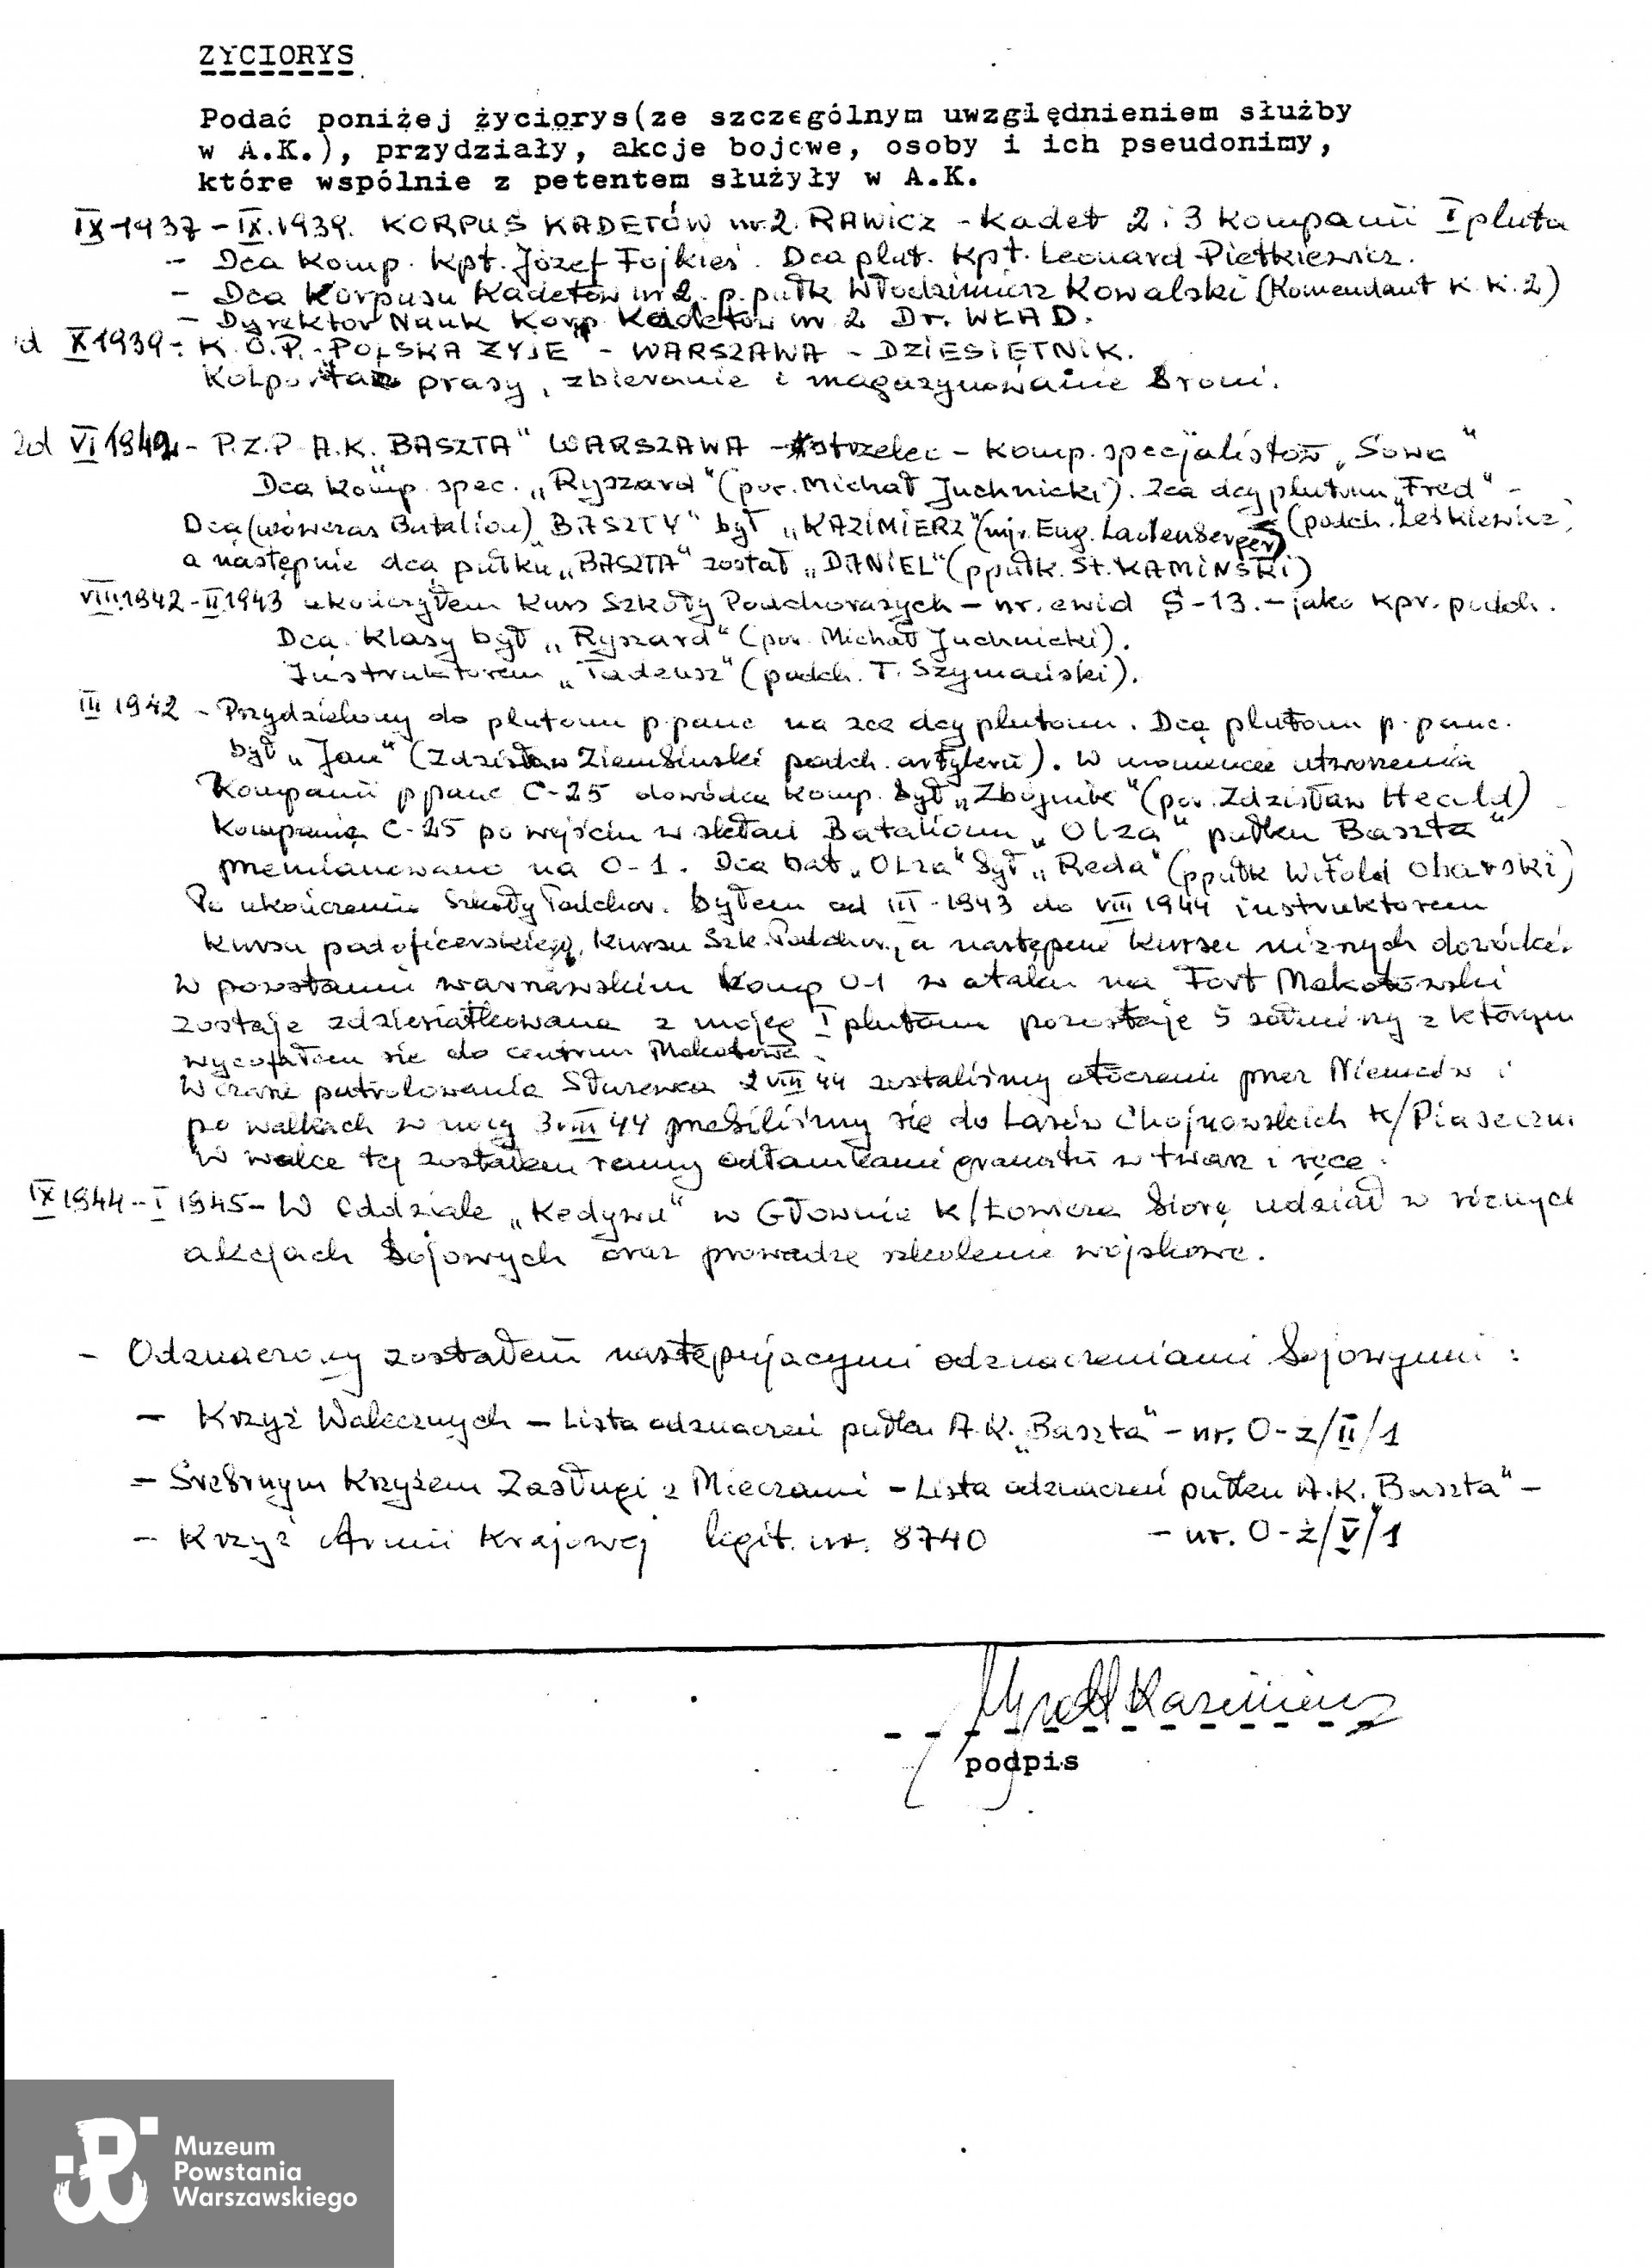 ŻYCIORYS
Podać poniżej życiorys(ze szczególnym uwzględnieniem służby
w A.K.), przydziały, akcje bojowe, osoby i ich pseudonimy,
które wspólnie z petentem służyły w A.K.
IX-1937-IX.1939. KORPUS KADETÓW nr 2. RAWICZ - Kadet 2 i 3 Kompanii I pluto
- Dca Komp. Kpt. Józef Fojkieś. Dca plut. Kpt. Leonard Pietkiewicz.
- Dca Korpusu Kadetów nr 2. p.pułk Włodzimierz Kowalski (Komendant K.K.2)
- Dyrektor Nauk Korp. Kadetów nr 2 Dr. WŁAD.
d X 1939 - K.O.P. - "POLSKA ŻYJE" - WARSZAWA - DZIESIĘTNIK.
Kolportaż prasy, zbieranie i magazynowanie broni.
od VI 1942 - P.Z.P A.K. BASZTA" WARSZAWA - strzelec - Komp. specjalistów „Sowa"
Dca Komp. spec. „Ryszard" (por. Michał Juchnicki). Zca dcy plutonu „Fred" -
Dcą (wówczas Batalion) BASZTY" był „KAZIMIERZ" (mjr. Eug. Landenberger) (podch. Leśkiewicz)
a następnie dcą pułku „BASZTA" został „DANIEL" (ppułk. St. KAMIŃSKI)
VIII.1942-II.1943 ukończyłem Kurs Szkoły Podchorążych - nr. ewid S-13. - jako kpr. podch.
Dcą Klasy był „Ryszard" (por. Michał Juchnicki).
Instruktorem „Tadeusz" (podch. T. Szymański).
III 1942 - Przydzielony do plutonu p.panc na zcę dcy plutonu. Dcą plutonu p.panc.
był „Jan" (Zdzisław Ziembiński podch. artylerii). W momencie utworzenia
Kompanii p panc C-25 dowódcą komp. był „Zbójnik" (por. Zdzisław Heald)
Kompanię C-25 po wejściu w skład Batalionu „Olza" pułku Baszta"
przemianowano na O-1. Dcą bat „Olza" był „Reda" (ppułk Witold)
Po ukończeniu Szkoły Podchor. byłem od III-1943 do VIII 1944 instruktorem
Kursu podoficerskiego, Kursu Szk. Podchor., a następnie Kursu niższych dowódców
W powstaniu warszawskim Komp O-1 w ataku na Fort Mokotowski
zostaje zdziesiątkowana z mojego I plutonu pozostaje 5 żołnierzy z którymi
wycofałem się do centrum Mokotowa.
W czasie patrolowania Służewca 2 VIII 44 zostaliśmy otoczeni przez Niemców i
po walkach w nocy 3 VIII 44 przebiliśmy się do Lasów Chojnowskich k/Piaseczn
W walce tej zostałem ranny odłamkami granatu w twarz i rękę.
IX 1944 - I 1945 - W Oddziale „Kedywu" w Głownie k/Łowicza biorę udział w różnych
akcjach bojowych oraz prowadzę szkolenie wojskowe.
- Odznaczony zostałem następującymi odznaczeniami bojowymi:
- Krzyż Walecznych - Lista odznaczeń pułku A.K. „Baszta" - nr. O-ż/II/1
- Srebrnym Krzyżem Zasługi z Mieczami - Lista odznaczeń pułku A.K. „Baszta" -
- Krzyż Armii Krajowej legit. nr. 8740 - nr. O-ż/V/1
Kazimierz
podpis
Muzeum
Powstania
Warszawskiego